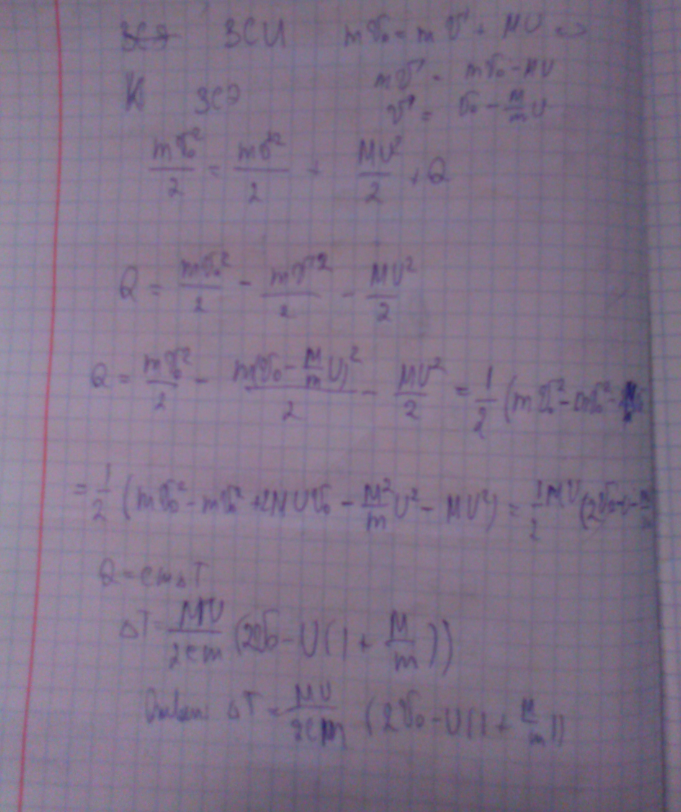 ЗСЯ ЗСИ mv₀ = mv' + MU =>
mv' = mv₀ - MU
К ЗСЭ v' = v₀ - M/m U
mv₀²/2 = mv'²/2 + MU²/2 + Q
Q = mv₀²/2 - mv'²/2 - MU²/2
Q = mv₀²/2 - m(v₀ - M/m U)²/2 - MU²/2 = 1/2 (mv₀² - mv₀² -
= 1/2 (mv₀² - mv₀² + 2MUv₀ - M²/m U² - MU²) = 1/2 MU (2v₀ - U -
Q = cm△T
△T = MU/2cm (2v₀ - U(1 + M/m))
Ответ: △T = MU/2cm (2v₀ - U(1 + M/m))